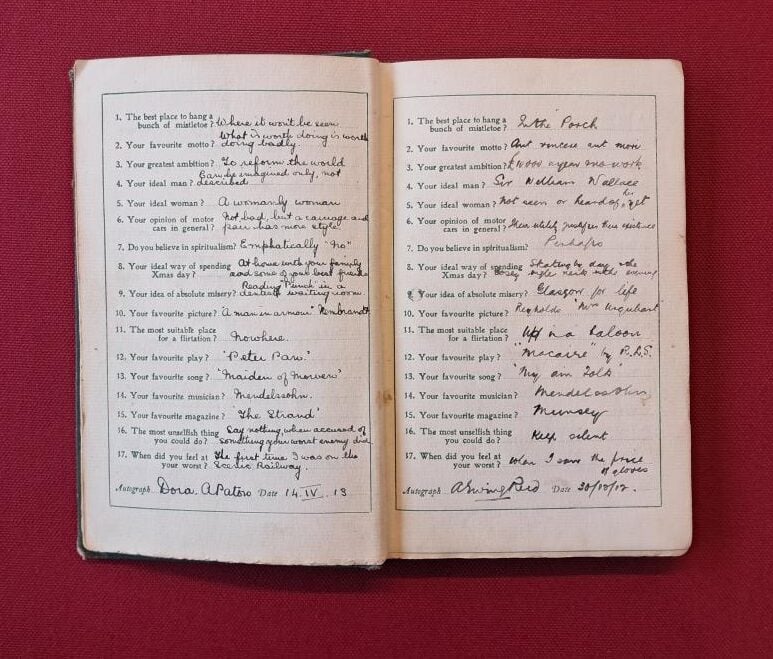 1. The best place to hang a
bunch of mistletoe? Where it won't be seen
What is worth doing is worth
2. Your favourite motto? doing badly.
3. Your greatest ambition? To reform the world
Can be imagined only, not
4. Your ideal man? described
5. Your ideal woman? A womanly woman
6. Your opinion of motor Not bad, but a carriage and
cars in general? pair has more style
7. Do you believe in spiritualism? Emphatically "no"
8. Your ideal way of spending At home with your family
Xmas day? and some of your best friends
Reading "Punch" in a
9. Your idea of absolute misery? dentist's waiting room
10. Your favourite picture? 'A man in armour' Rembrandt
11. The most suitable place
for a flirtation? Nowhere.
12. Your favourite play? 'Peter Pan.'
13. Your favourite song? 'Maiden of Morven'
14. Your favourite musician? Mendelssohn.
15. Your favourite magazine? 'The Strand'
16. The most unselfish thing Say nothing, when accused of
you could do? something your worst enemy did
17. When did you feel at The first time I was on the
your worst? Scenic Railway.
Autograph Dora. A Paton Date 14.IV.13
1. The best place to hang a
bunch of mistletoe? In the Porch
2. Your favourite motto? Aut vincere aut mori
3. Your greatest ambition? £10000 a year & no work
4. Your ideal man? Sir William Wallace
5. Your ideal woman? Not seen or heard of her yet
6. Your opinion of motor
cars in general? Their utility justifies their existence
7. Do you believe in spiritualism? Perhaps
8. Your ideal way of spending Skating by day &
Xmas day? in the evening
9. Your idea of absolute misery? Glasgow for life
10. Your favourite picture? "Mrs Urquhart"
11. The most suitable place
for a flirtation? Up in a baloon
12. Your favourite play? "Macaire" by R.L.S.
13. Your favourite song? "My ain Folk"
14. Your favourite musician? Mendelssohn
15. Your favourite magazine? Munsey
16. The most unselfish thing
you could do? Keep silent
17. When did you feel at
your worst? when I saw the price
of gloves
Autograph A Ewing Reid Date 30/12/12.